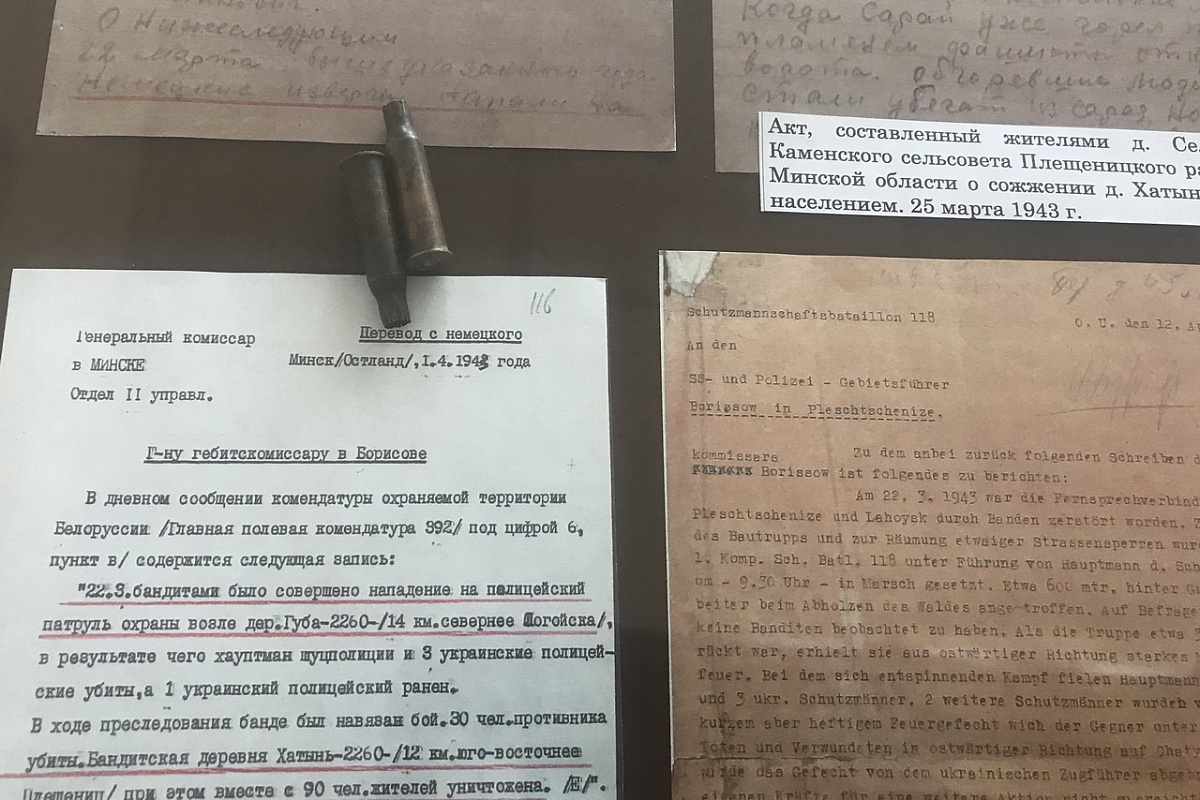 О Нижеследующим
22 марта вышеуказанного года
Немецкие изверги напали на
Когда сарай уже горел
пламенем фашисты
ворота. обгоревшие
стали убегат из сарая, но
Акт, составленный жителями д.
Каменского сельсовета Плещеницкого
Минской области о сожжении д. Хатын
населением. 25 марта 1943 г.
116
Генеральный комиссар
Перевод с немецкого
в МИНСКЕ
Минск/Остланд/,I.4.1943 года
Отдел II управл.
Г-ну гебитскомиссару в Борисове
В дневном сообщении комендатуры охраняемой территории
Белоруссии /Главная полевая комендатура 392/ под цифрой 6,
пункт в/ содержится следующая запись:
"22.3.бандитами было совершено нападение на полицейский
патруль охраны возле дер.Губа-2260-/14 км.севернее Логойска/,
в результате чего хауптман шуцполиции и 3 украинские полицей-
ские убиты,а 1 украинский полицейский ранен.
В ходе преследования банде был навязан бой.30 чел.противника
убиты.Бандитская деревня Хатынь-2260-/12 км.юго-восточнее
Плещениц/ при этом вместе с 90 чел.жителей уничтожена. /Е/".
Schutzmannschaftsbataillon 118
O. U. den 12.
An den
SS- und Polizei - Gebietsführer
Borissow in Pleschtschenize.
kommissars
Zu dem anbei zurück folgenden Schreiben
Borissow ist folgendes zu berichten:
Am 22. 3. 1943 war die Fernsprechverbind
Pleschtschenize und Lahoysk durch Banden zerstört worden.
des Bautrupps und zur Räumung etwaiger Strassensperren wur
1. Komp. Sch. Batl. 118 unter Führung von Hauptmann d. Sch
um - 9.30 Uhr - in Marsch gesetzt. Etwa 600 mtr. hinter
beiter beim Abholzen des Waldes angetroffen. Auf Befrage
keine Banditen beobachtet zu haben. Als die Truppe etwa
rückt war, erhielt sie aus ostwärtiger Richtung starkes
feuer. Bei dem sich entspinnenden Kampf fielen Hauptmann
und 3 ukr. Schutzmänner. 2 weitere Schutzmänner wurden
kurzem aber heftigem Feuergefecht wich der Gegner unter
Toten und Verwundeten in ostwärtiger Richtung auf Chaty
wurde das Gefecht von dem ukrainischen Zugführer abgeb
eigenen Kräfte für eine weitere Aktion nicht